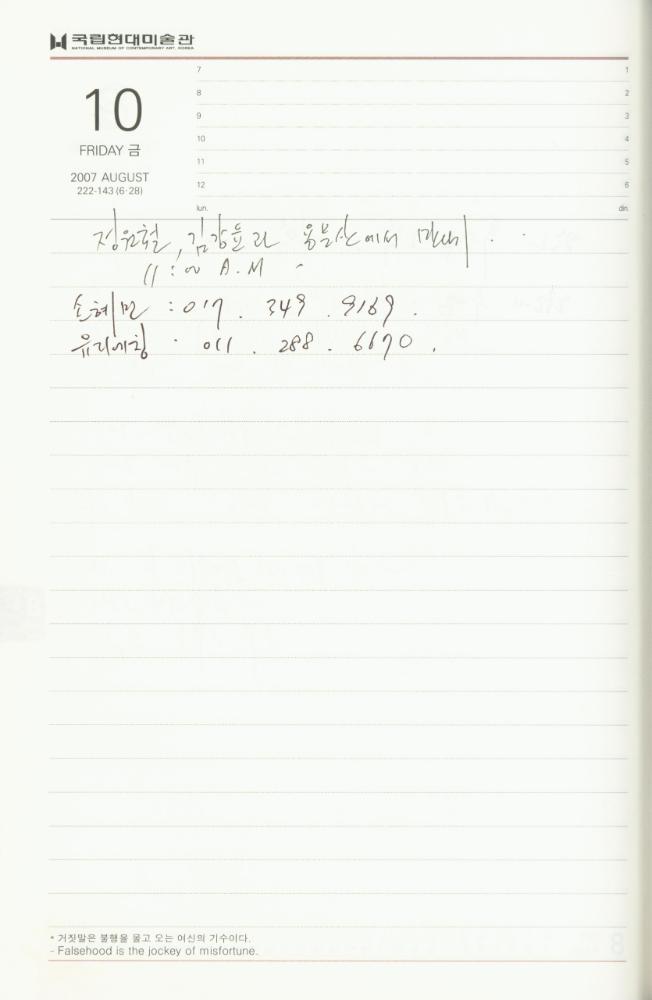 국립현대미술관
NATIONAL MUSEUM OF CONTEMPORARY ART, KOREA
10
FRIDAY 금
2007 AUGUST
222-143 (6·28)
7 1
8 2
9 3
10 4
11 5
12 6
lun. din.
정원철, 김강윤과 용문산에서 만남.
11:00 A.M
손혜민 : 017. 349. 9169.
유리에칭 · 011. 288. 6670.
* 거짓말은 불행을 몰고 오는 여신의 기수이다.
- Falsehood is the jockey of misfortune.